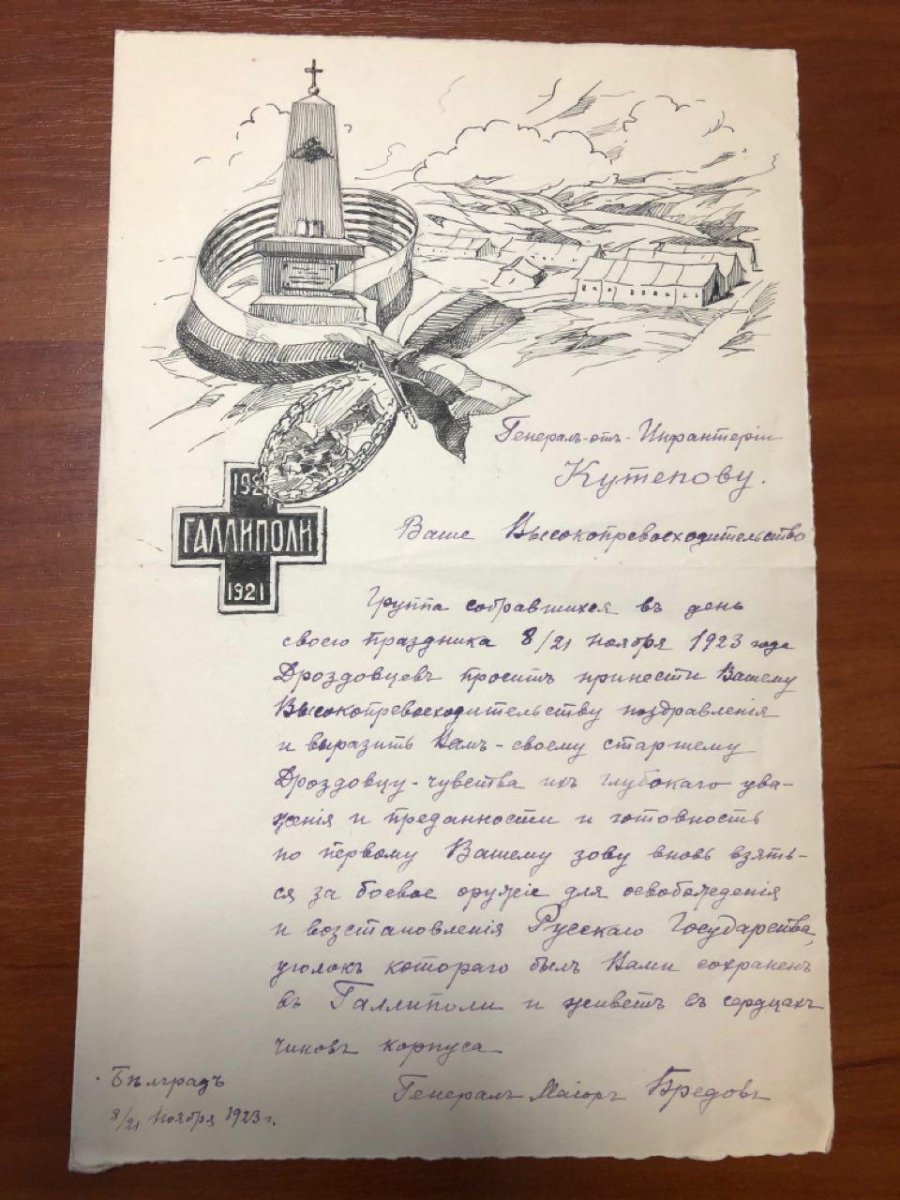 Генералъ-отъ-Инфантеріи
Кутепову.
Ваше Высокопревосходительство
192
ГАЛЛИПОЛИ
1921
Группа собравшихся въ день
своего праздника 8/21 ноября 1923 года
Дроздовцевъ проситъ принести Вашему
Высокопревосходительству поздравленія
и выразить Вамъ-своему старшему
Дроздовцу-чувства ихъ глубокаго ува-
женія и преданности и готовность
по первому Вашему зову вновь взять-
ся за боевое оружіе для освобожденія
и возстановленія Русскаго Государства,
уголокъ котораго былъ Вами сохраненъ
въ Галлиполи и живетъ въ сердцахъ
чиновъ корпуса
Генералъ Маіоръ Бредовъ
Бѣлградъ
8/21 ноября 1923 г.